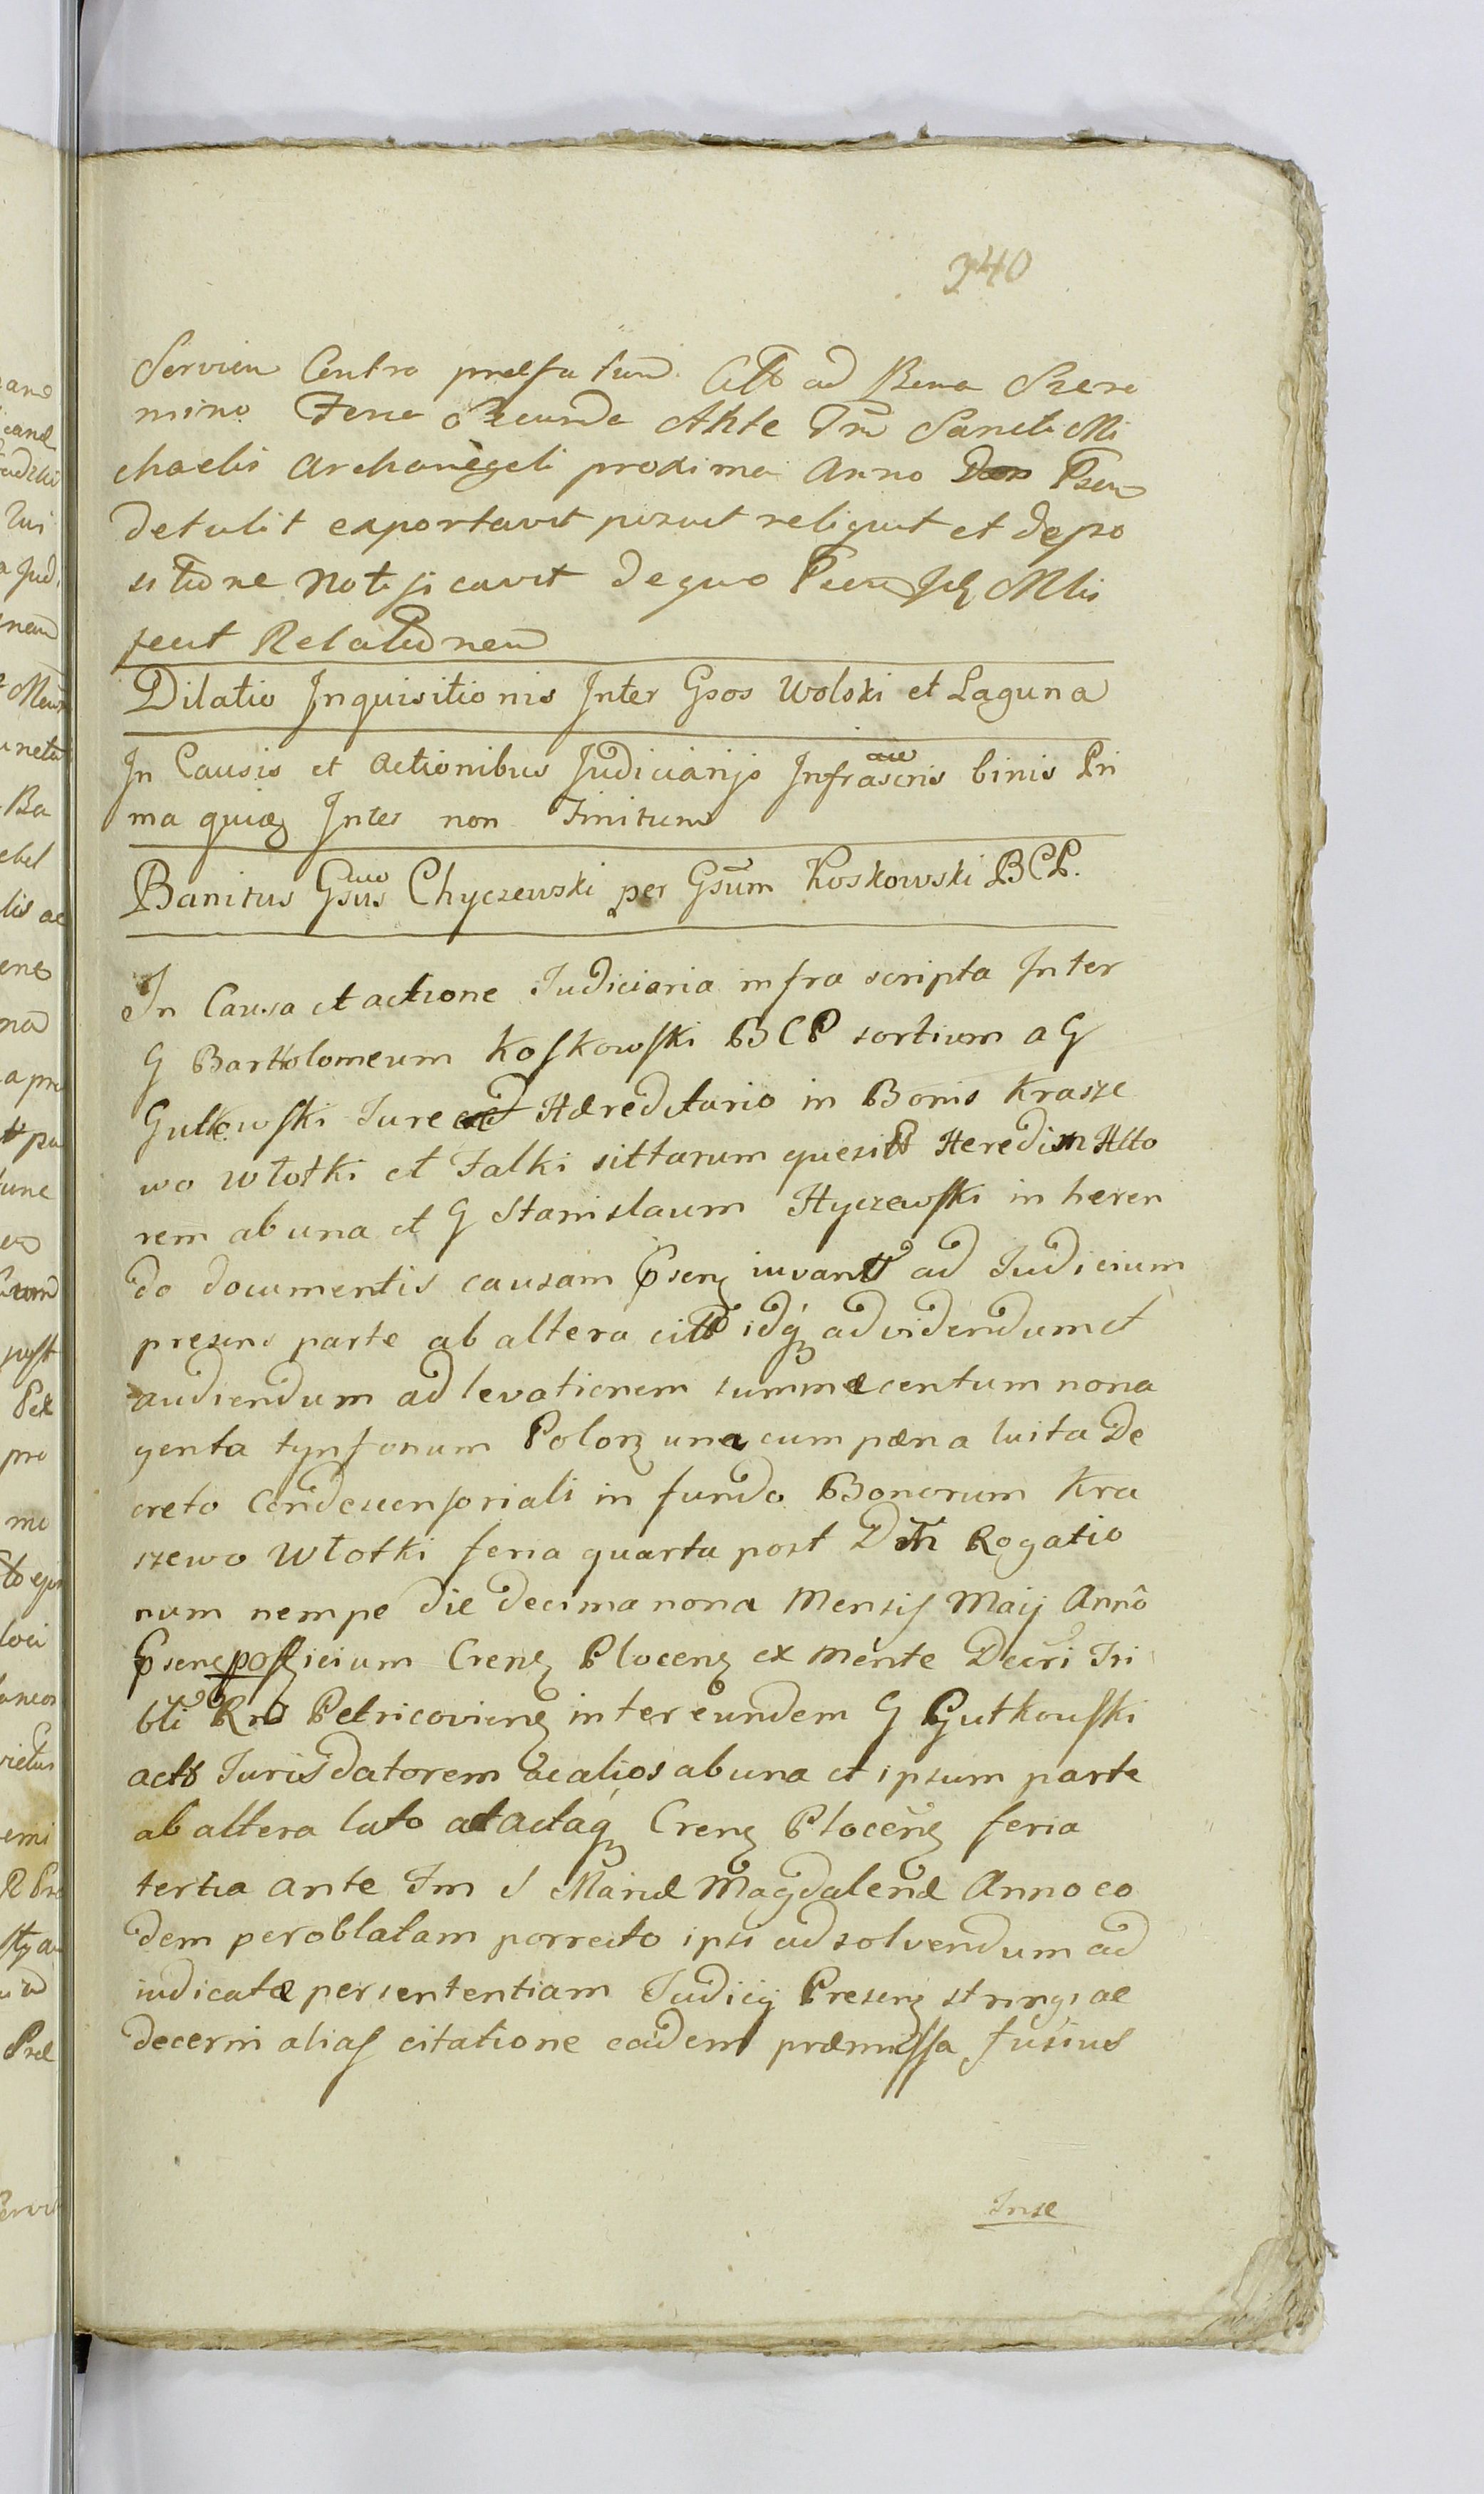 340
Servien Contra praefatum Citt ad Bona Szere
mino Feria Secunda Ante Fm Sancti Mi
chaelis Archangeli proxima Anno Psen
detulit exportavit posuit reliquit et depo
sitione notificavit de quo Psen Jch Mlis
fecit Relationem
Dilatio Inquisitionis Inter Gsos Wolski et Laguna
In Causis et Actionibus Judiciarijs Infrascris binis Pri
ma quid Inter non Finitum
Banitus Gsus Chyczewski per Gsum Koskowski BCP.
In Causa et actione Iudiciaria infra scripta Inter
G Bartholomeum Koskowski BCP sortium a G
Gutkowski Iure Hæreditario in Bonis Krasze
wo Włotki et Falki sittarum quesitt Heredim Atto
rem ab una et G Stanislaum Hyczewski in heren
do documentis causam psens iuvantt ad Iudicium
presens parte ab altera citto idq ad videndum et
audiendum ad levationem summæ centum nona
genta tynfonum Polonz una cum pæna luita De
creto Condescensoriali in fundo Bonorum Kra
szewo Włotki feria quarta post Dm Rogatio
num nempe die decima nona Mensis Maij Anno
psenc officium Crens Plocens ex mente Decri Tri
bli Rni Petricoviens inter eundem G Gutkowski
acto Iuris datorem ac alios ab una et ipsum parte
ab altera lato ad actaq Crens Plocens feria
tertia ante Fm S Mariæ Magdalenæ Anno eo
dem per oblatam porrecto ipsi ad solvendum ad
iudicatæ per sententiam Iudicij Presens stringi ac
decerni alias citatione eadem præmissa fusius
Inse